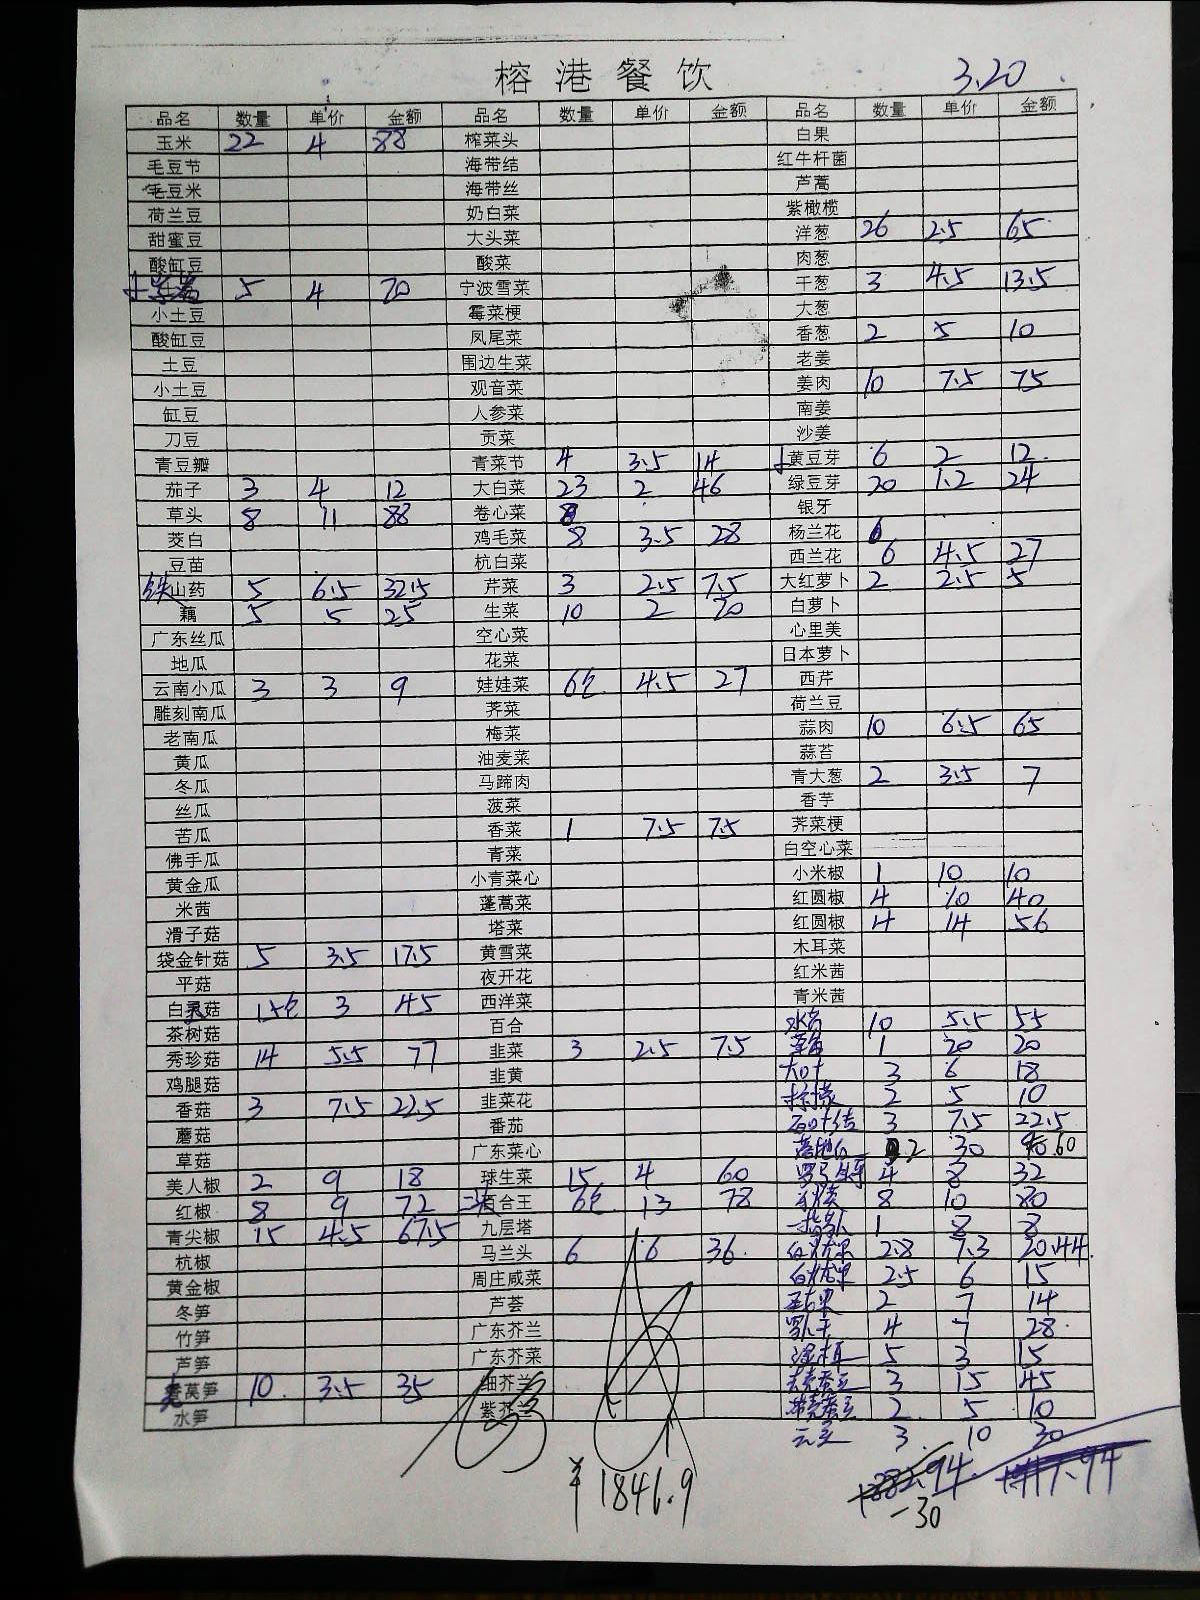 榕港餐饮 3.20
品名 数量 单价 金额 品名 数量 单价 金额 品名 数量 单价 金额
玉米 22 4 88 榨菜头 白果
毛豆节 海带结 红牛杆菌
毛豆米 海带丝 芦蒿
荷兰豆 奶白菜 紫橄榄
甜蜜豆 大头菜 洋葱 26 2.5 65
酸缸豆 酸菜 肉葱
5 4 20 宁波雪菜 干葱 3 4.5 13.5
小土豆 霉菜梗 大葱
酸缸豆 凤尾菜 香葱 2 5 10
土豆 围边生菜 老姜
小土豆 观音菜 姜肉 10 7.5 75
缸豆 人参菜 南姜
刀豆 贡菜 沙姜
青豆瓣 青菜节 4 3.5 14 黄豆芽 6 2 12
茄子 3 4 12 大白菜 23 2 46 绿豆芽 20 1.2 24
草头 8 11 88 卷心菜 8 银牙
茭白 鸡毛菜 8 3.5 28 杨兰花
豆苗 杭白菜 西兰花 6 4.5 27
铁山药 5 6.5 32.5 芹菜 3 2.5 7.5 大红萝卜 2 2.5 5
藕 5 5 25 生菜 10 2 20 白萝卜
广东丝瓜 空心菜 心里美
地瓜 花菜 日本萝卜
云南小瓜 3 3 9 娃娃菜 6包 4.5 27 西芹
雕刻南瓜 荠菜 荷兰豆
老南瓜 梅菜 蒜肉 10 6.5 65
黄瓜 油麦菜 蒜苔
冬瓜 马蹄肉 青大葱 2 3.5 7
丝瓜 菠菜 香芋
苦瓜 香菜 1 7.5 7.5 荠菜梗
佛手瓜 青菜 白空心菜
黄金瓜 小青菜心 小米椒 1 10 10
米茜 蓬蒿菜 红圆椒 4 10 40
滑子菇 塔菜 红圆椒 4 14 56
袋金针菇 5 3.5 17.5 黄雪菜 木耳菜
平菇 夜开花 红米茜
白灵菇 15包 3 45 西洋菜 青米茜
茶树菇 百合 10 5.5 55
秀珍菇 14 5.5 77 韭菜 3 2.5 7.5 1 20 20
鸡腿菇 韭黄 大叶 3 6 18
香菇 3 7.5 22.5 韭菜花 柠檬 2 5 10
蘑菇 番茄 3 7.5 22.5
草菇 广东菜心 2 30 60
美人椒 2 9 18 球生菜 15 4 60 罗马生菜 4 8 32
红椒 8 9 72 百合王 6包 13 78 8 10 80
青尖椒 15 4.5 67.5 九层塔 1 8 8
杭椒 马兰头 6 6 36 2.8 7.3 20.44
黄金椒 周庄咸菜 2.5 6 15
冬笋 芦荟 2 7 14
竹笋 广东芥兰 4 7 28
芦笋 广东芥菜 5 3 15
莴笋 10 3.5 35 细芥兰 去壳蚕豆 3 15 45
水笋 紫芥兰 带壳蚕豆 2 5 10
3 10 30
¥1846.9 -30